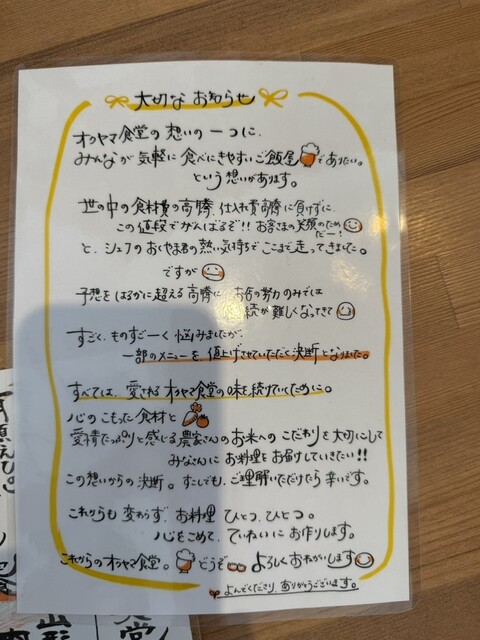 大切な お知らせ
オクヤマ食堂の 想いの 一つに、
みんなが 気軽に 食べにきやすい ご飯屋でありたい。
という 想いがあります。
世の中の食材費の高騰、仕入れ費高騰に負けずに、
この値段でがんばるぞ!! お客さまの笑顔のため
だー!
と、シェフのおくやま君の熱い気持ちでここまで走ってきました。
ですが
予想をはるかに超える高騰に お店の努力のみでは
続が難しくなってきて
すごく、ものすごーく悩みましたが、
一部のメニューを値上げさせていただく決断となりました。
すべては、愛されるオクヤマ食堂の味を続けていくために。
心のこもった食材と
愛情たっぷりと感じる農家さんのお米へのこだわりを大切にして
みなさんにお料理をお届けしていきたい!!
この想いからの決断。すこしでも、ご理解いただけたら幸いです。
これからも変わらず、お料理ひとつ、ひとつ。
心をこめて、ていねいにお作りします。
これからのオクヤマ食堂。どうぞ よろしくおねがいします
よんでくださり、ありがとうございます。